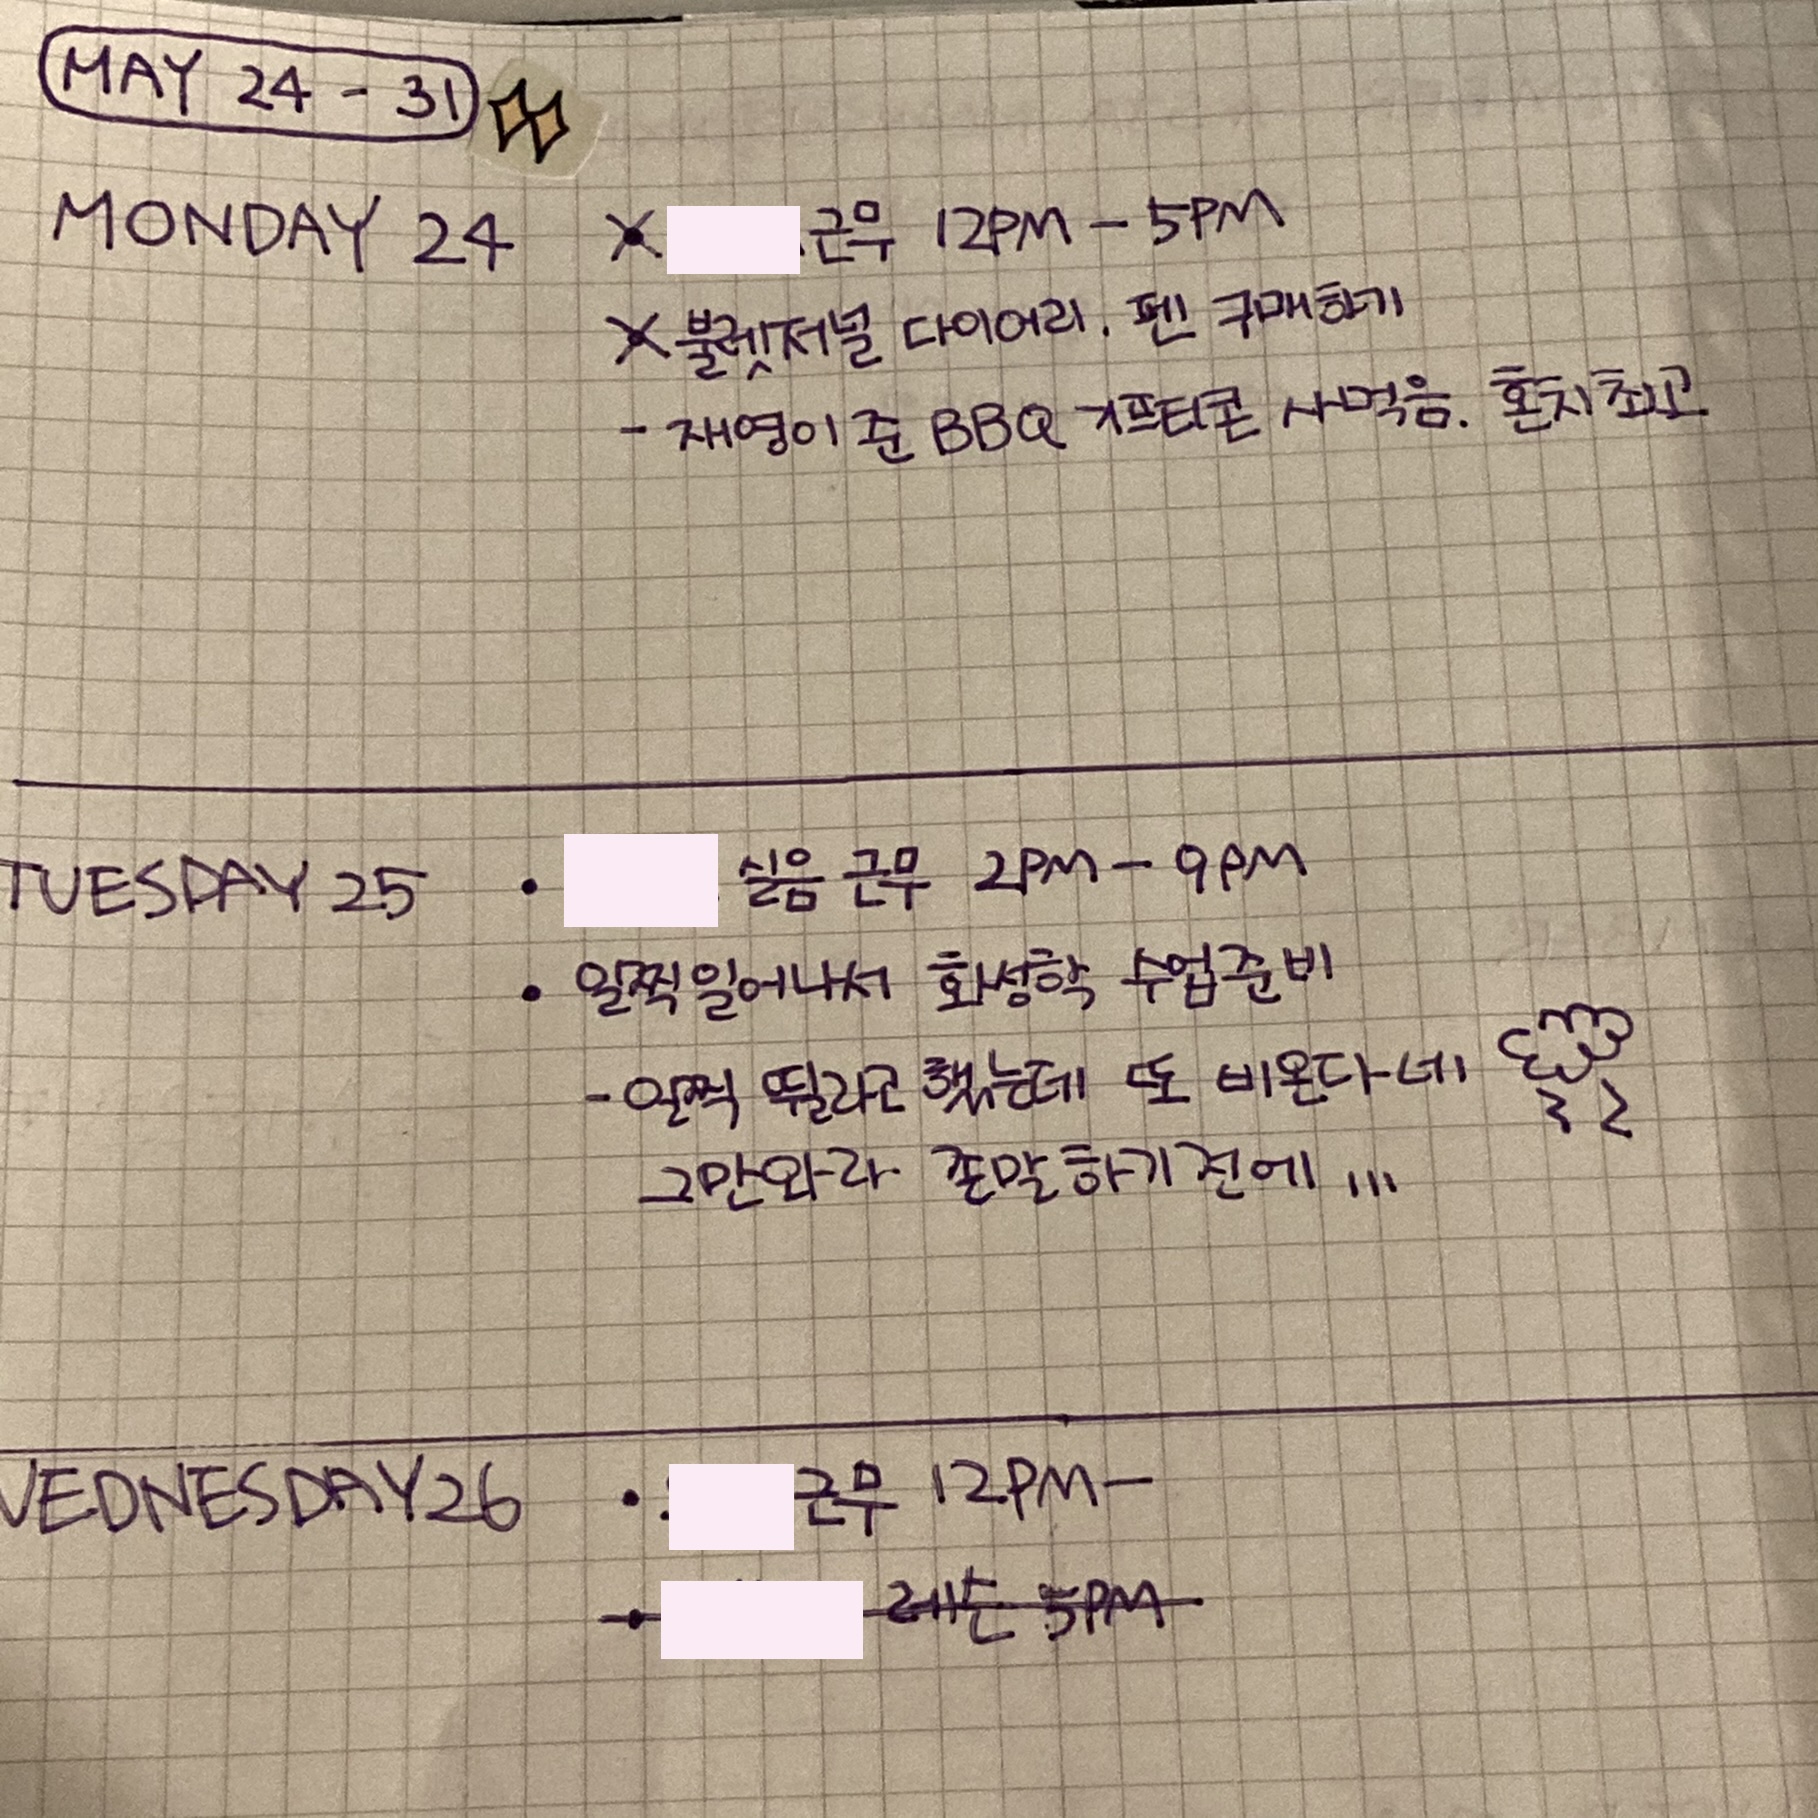 MAY 24 - 31
MONDAY 24
근무 12PM - 5PM
불렛저널 다이어리. 펜 구매하기
- 재영이 준 BBQ 기프티콘 사먹음. 혼치최고
TUESDAY 25
실음 근무 2PM - 9PM
• 일찍일어나서 화성학 수업준비
- 일찍 뛸라고 했는데 또 비온다네
그만와라 존말하기전에 ...
WEDNESDAY 26
• 근무 12PM-
레슨 5PM